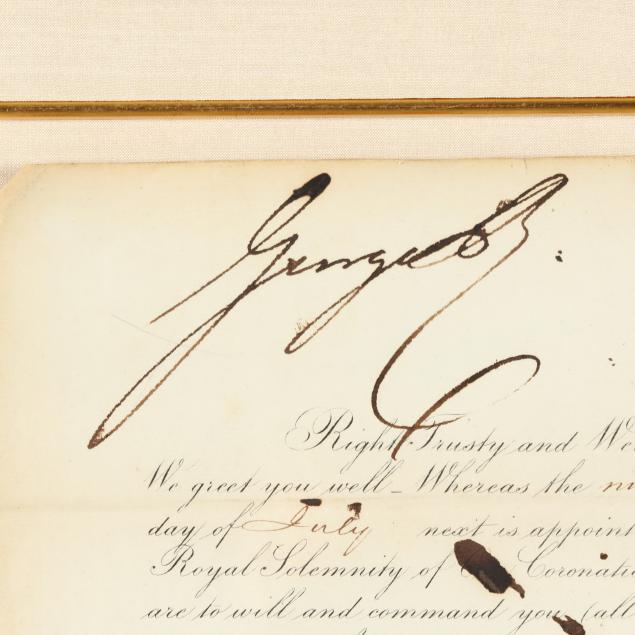 George R :
Right Trusty and We
We greet you well_ Whereas the
day of July next is appoint
Royal Solemnity of Coronatio
are to will and command you (all